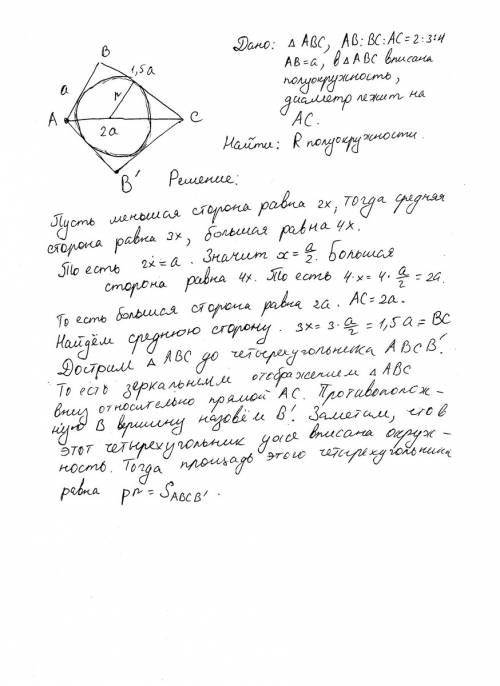 B
1,5a
a
r
A
C
2a
B'
Дано: △ ABC, AB:BC:AC=2:3:4
AB=a, в △ ABC вписана
полуокружность,
диаметр лежит на
AC.
Найти: R полуокружности.
Решение:
Пусть меньшая сторона равна 2x, тогда средняя
сторона равна 3x, большая равна 4x.
То есть 2x=a. Значит x=a/2. Большая
сторона равна 4x. То есть 4·x=4·a/2=2a.
То есть большая сторона равна 2a. AC=2a.
Найдём среднюю сторону. 3x=3·a/2=1,5a=BC
Достроим △ ABC до четырехугольника ABCB'.
То есть зеркальным отображением △ ABC
вниз относительно прямой AC. Противополож-
ную B вершину назовём B'. Заметим, что в
этот четырехугольник уже вписана окруж-
ность. Тогда площадь этого четырехугольника
равна pr=S_ABCB'.